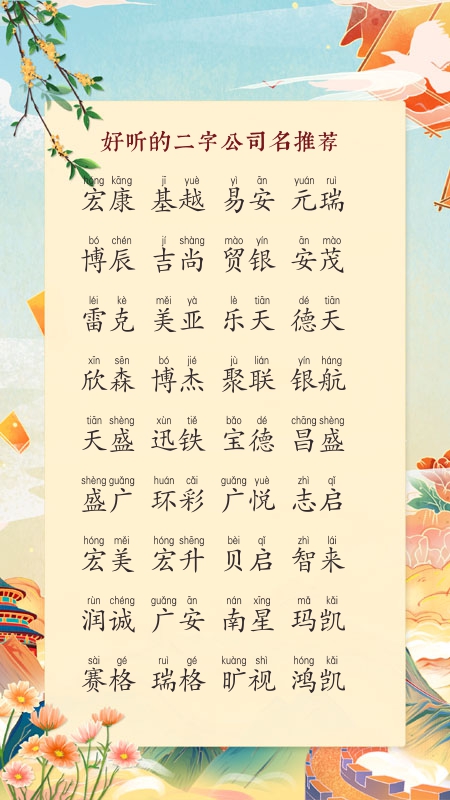 好听的二字公司名推荐
hóng kāng jī yuè yì ān yuán ruì
宏康 基越 易安 元瑞
bó chén jí shàng mào yín ān mào
博辰 吉尚 贸银 安茂
léi kè měi yà lè tiān dé tiān
雷克 美亚 乐天 德天
xīn sēn bó jié jù lián yín háng
欣森 博杰 聚联 银航
tiān shèng xùn tiě bǎo dé chāng shèng
天盛 迅铁 宝德 昌盛
shèng guǎng huán cǎi guǎng yuè zhì qǐ
盛广 环彩 广悦 志启
hóng měi hóng shēng bèi qǐ zhì lái
宏美 宏升 贝启 智来
rùn chéng guǎng ān nán xīng mǎ kǎi
润诚 广安 南星 玛凯
sài gé ruì gé kuàng shì hóng kǎi
赛格 瑞格 旷视 鸿凯